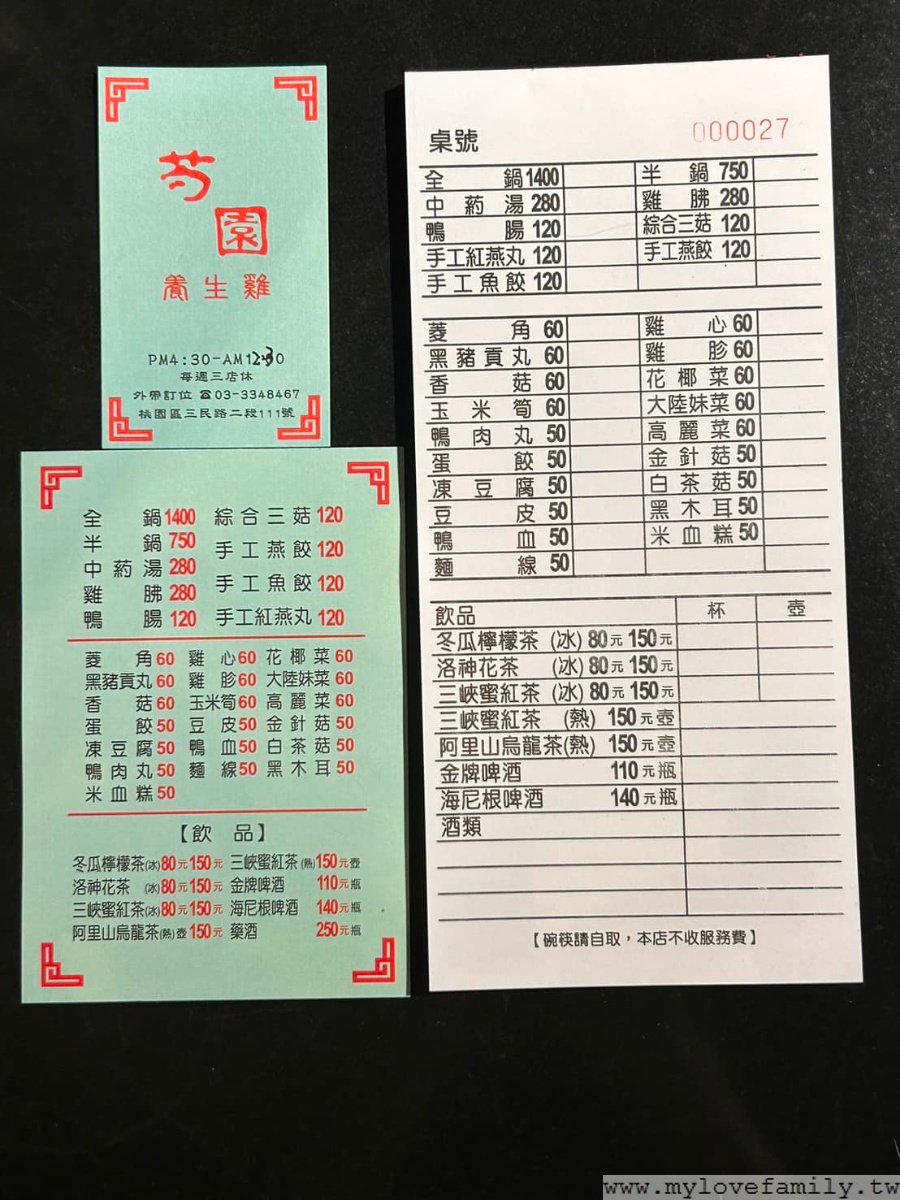 芍
園
養生雞
PM4:30-AM12:30
每週三店休
外帶訂位 ☎03-3348467
桃園區三民路二段111號
全鍋1400 綜合三菇120
半鍋750 手工燕餃120
中葯湯280 手工魚餃120
雞胇280 手工紅燕丸120
鴨腸120
菱角60 雞心60 花椰菜60
黑豬貢丸60 雞胗60 大陸妹菜60
香菇60 玉米筍60 高麗菜60
蛋餃50 豆皮50 金針菇50
凍豆腐50 鴨血50 白茶菇50
鴨肉丸50 麵線50 黑木耳50
米血糕50
【飲品】
冬瓜檸檬茶(冰)80元150元 三峽蜜紅茶(熱)150元壺
洛神花茶(冰)80元150元 金牌啤酒110元瓶
三峽蜜紅茶(冰)80元150元 海尼根啤酒140元瓶
阿里山烏龍茶(熱)壺150元 藥酒250元瓶
桌號 000027
全鍋1400 半鍋750
中葯湯280 雞胇280
鴨腸120 綜合三菇120
手工紅燕丸120 手工燕餃120
手工魚餃120
菱角60 雞心60
黑豬貢丸60 雞胗60
香菇60 花椰菜60
玉米筍60 大陸妹菜60
鴨肉丸50 高麗菜60
蛋餃50 金針菇50
凍豆腐50 白茶菇50
豆皮50 黑木耳50
鴨血50 米血糕50
麵線50
飲品 杯 壺
冬瓜檸檬茶(冰)80元150元
洛神花茶(冰)80元150元
三峽蜜紅茶(冰)80元150元
三峽蜜紅茶(熱)150元壺
阿里山烏龍茶(熱)150元壺
金牌啤酒110元瓶
海尼根啤酒140元瓶
酒類
【碗筷請自取，本店不收服務費】
www.mylovefamily.tw